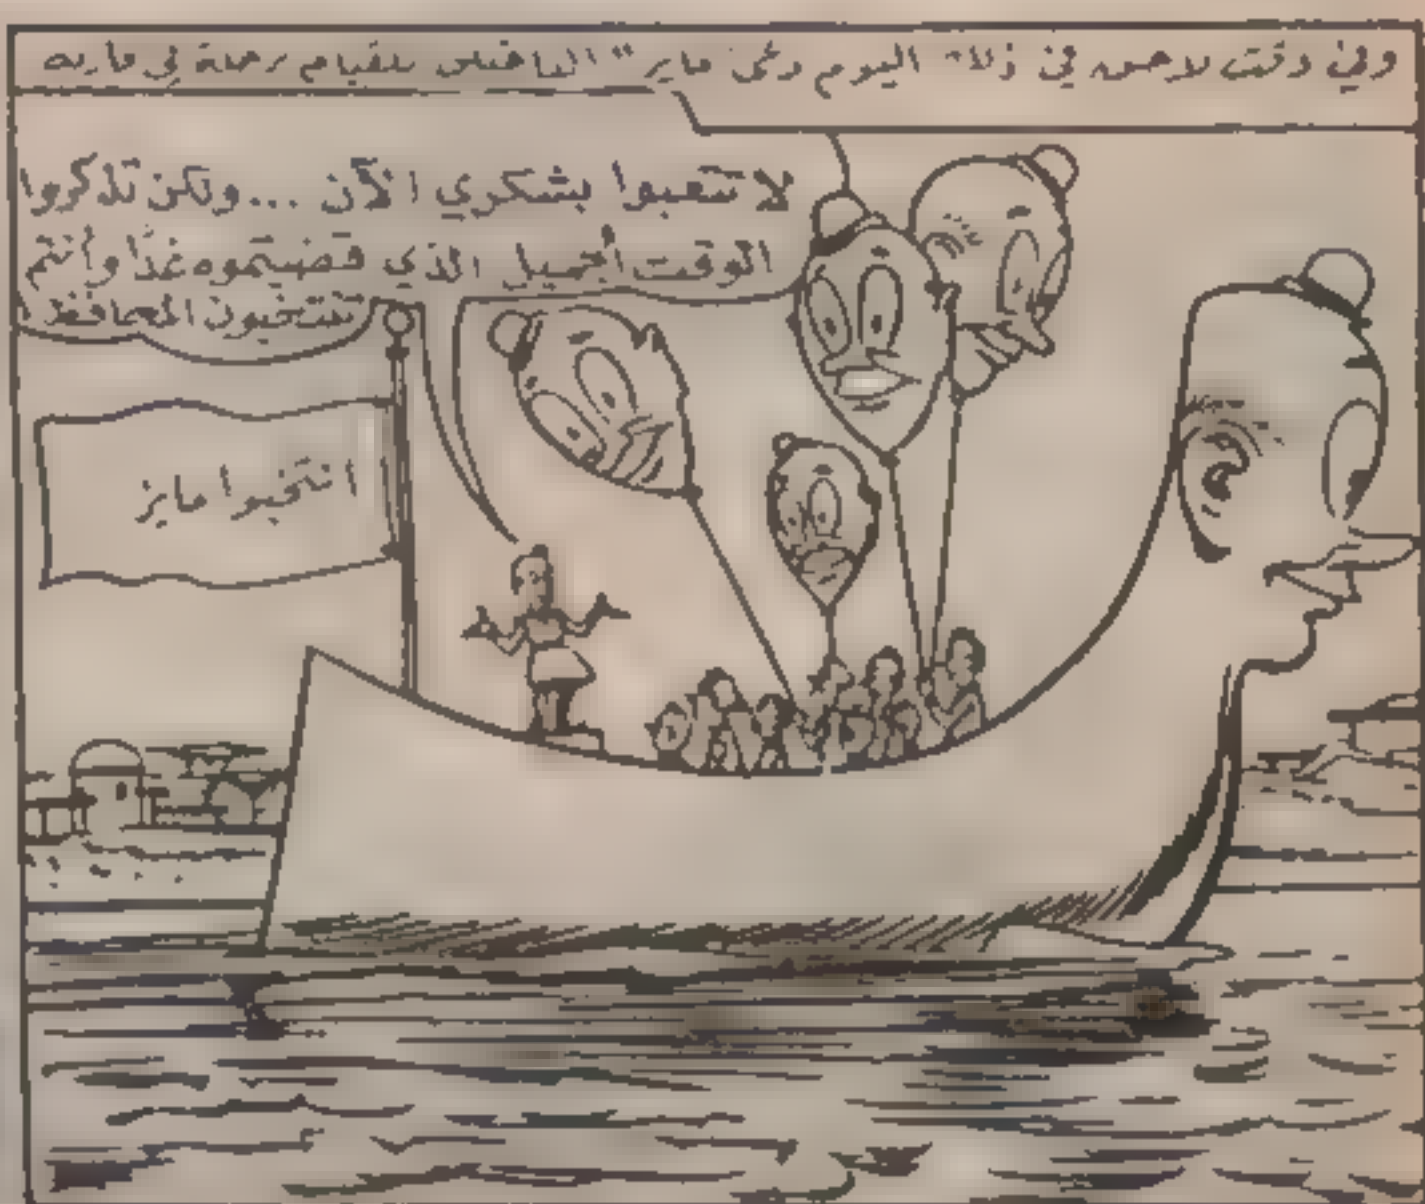 وفي وقت لاحق في ذلك اليوم دعى مايز الناخبين للقيام برحلة في قاربه
لا تتعبوا بشكري الآن ... ولكن تذكروا
الوقت الجميل الذي قضيتموه غدًا وأنتم
تنتخبون المحافظ
انتخبوا مايز